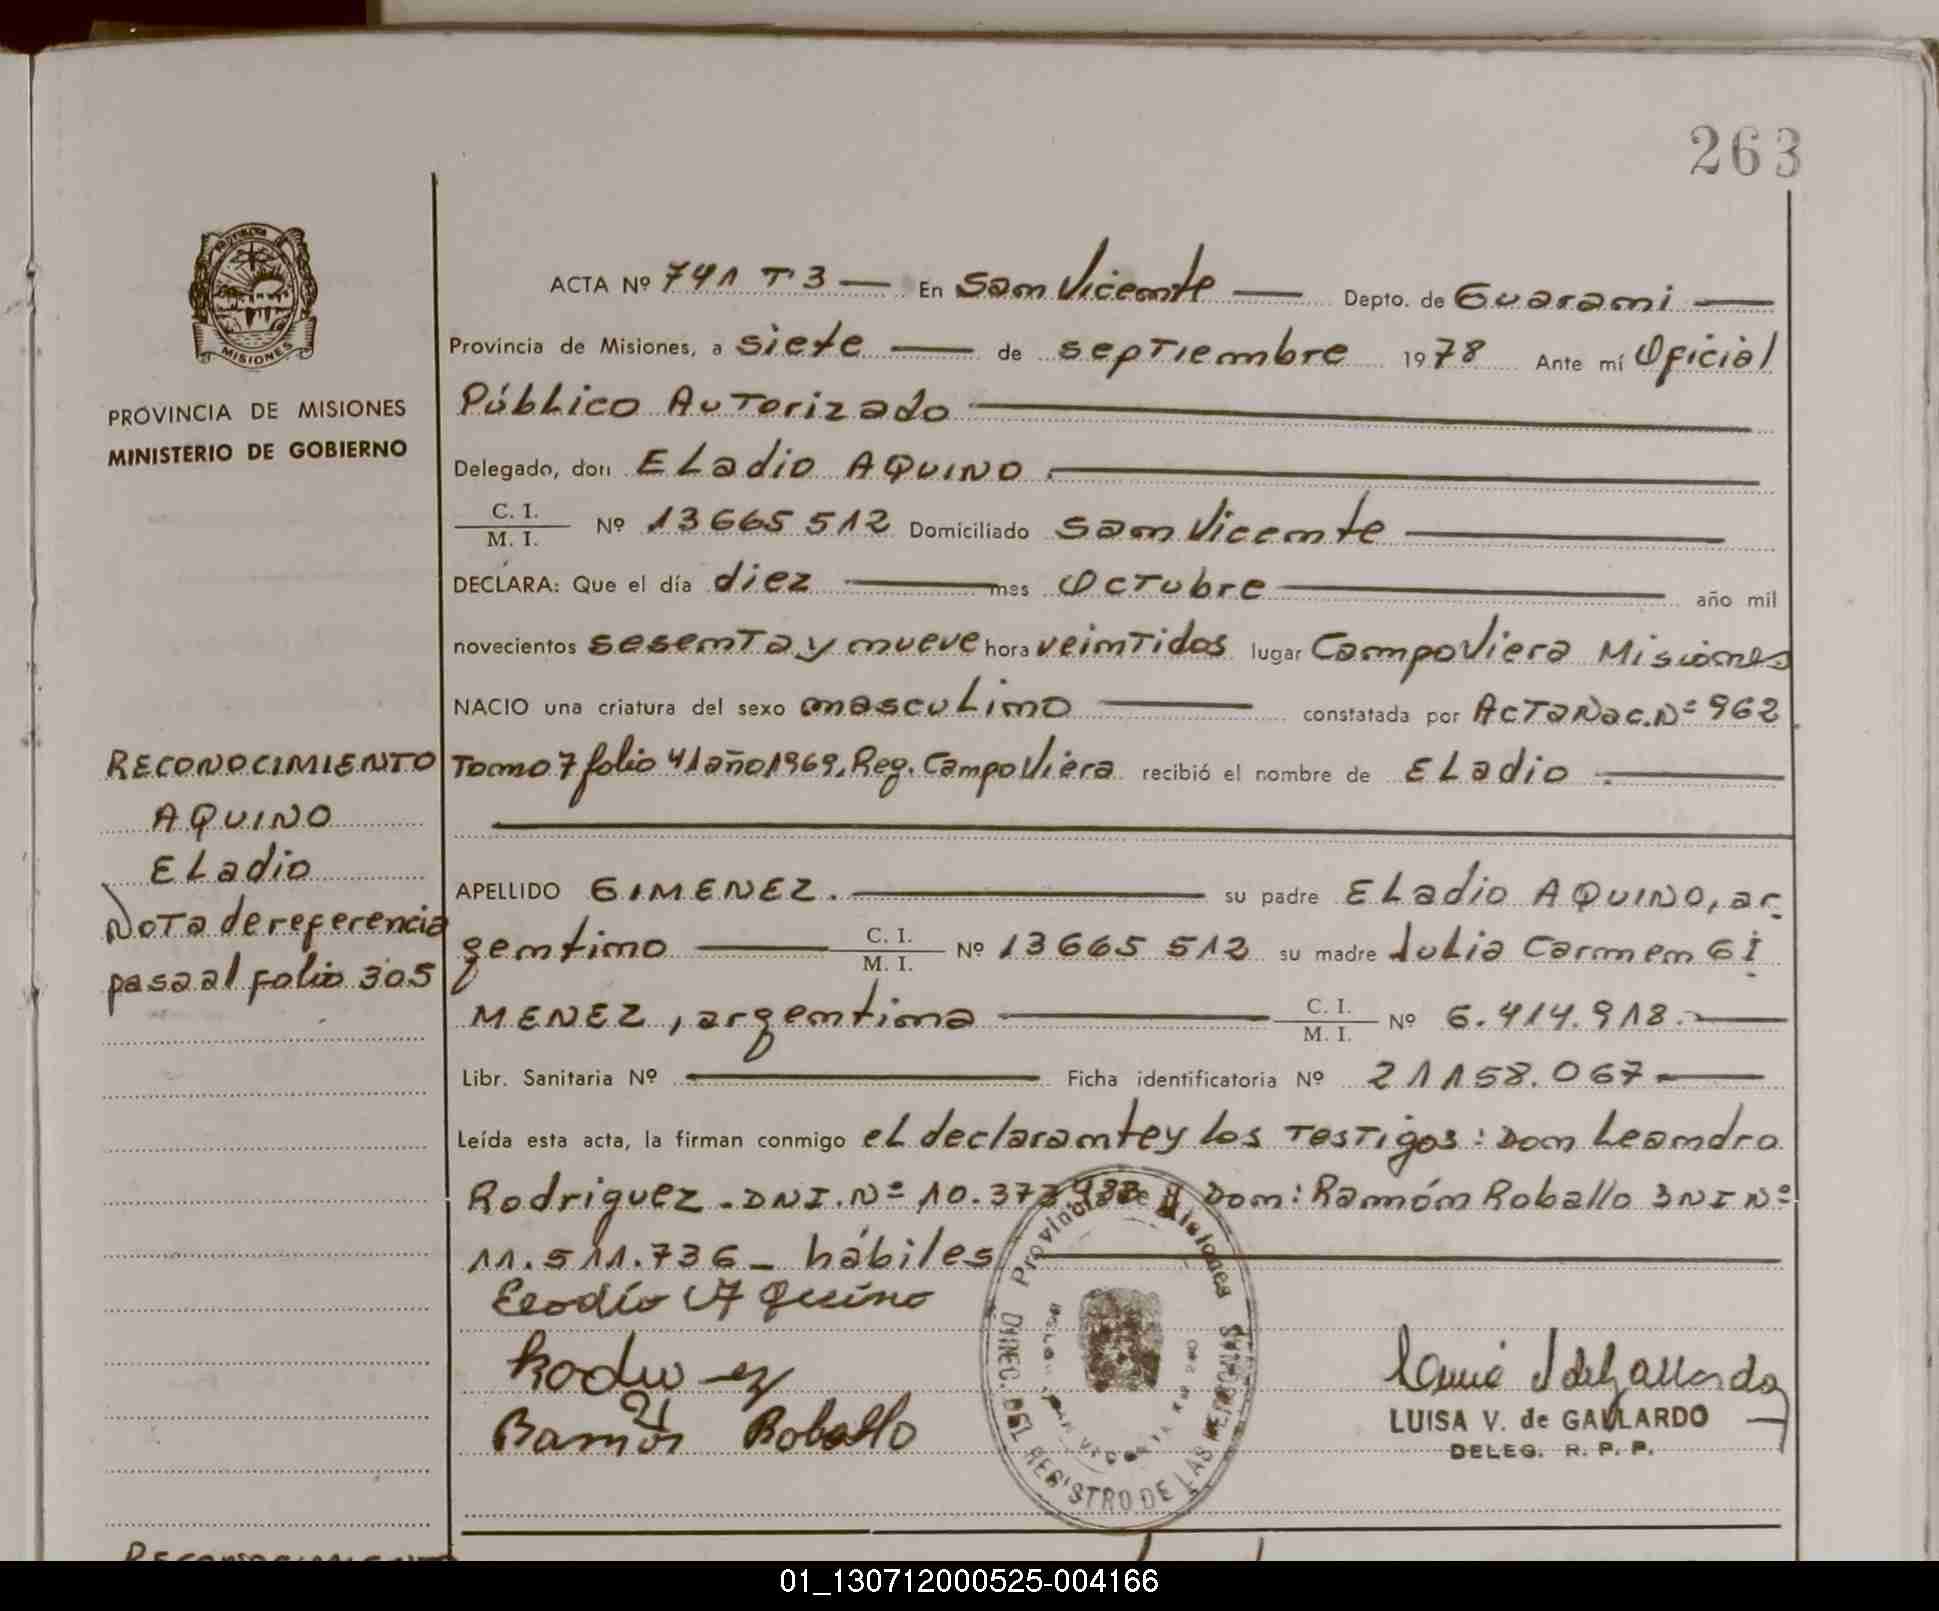 263
PROVINCIA DE MISIONES
MINISTERIO DE GOBIERNO
MISIONES
ACTA Nº 741 T 3 — En San Vicente — Depto. de Guarani —
Provincia de Misiones, a siete — de septiembre 1978 Ante mí Oficial
Público Autorizado —
Delegado, don Eladio AQUINO —
C. I. / M. I. Nº 13665 512 Domiciliado San Vicente —
DECLARA: Que el día diez — mes Octubre — año mil
novecientos sesenta y nueve hora veintidos lugar Campo Viera Misiones
NACIO una criatura del sexo masculino — constatada por Acta Nac. Nº 962
Tomo 7 folio 41 año 1969, Reg. Campo Viera recibió el nombre de Eladio —
APELLIDO GIMENEZ. — su padre Eladio AQUINO, ar
gentino — C. I. / M. I. Nº 13665 512 su madre Julia Carmen GI
MENEZ, argentina — C. I. / M. I. Nº 6.414.918. —
Libr. Sanitaria Nº — Ficha identificatoria Nº 21158.067 —
Leída esta acta, la firman conmigo el declarante y los Testigos: Don Leandro
Rodriguez - DNI. Nº 10. Don: Ramón Roballo DNI Nº
11.511.736 - hábiles —
RECONOCIMIENTO
AQUINO
Eladio
Nota de referencia
pasa al folio 305
Eladio Aquino
Ramón Roballo
Provincia de Misiones
DIREC. DEL REGISTRO DE LAS PERSONAS
LUISA V. de GALLARDO
DELEG. R. P. P.
RECONOCIMIENTO
01_130712000525-004166